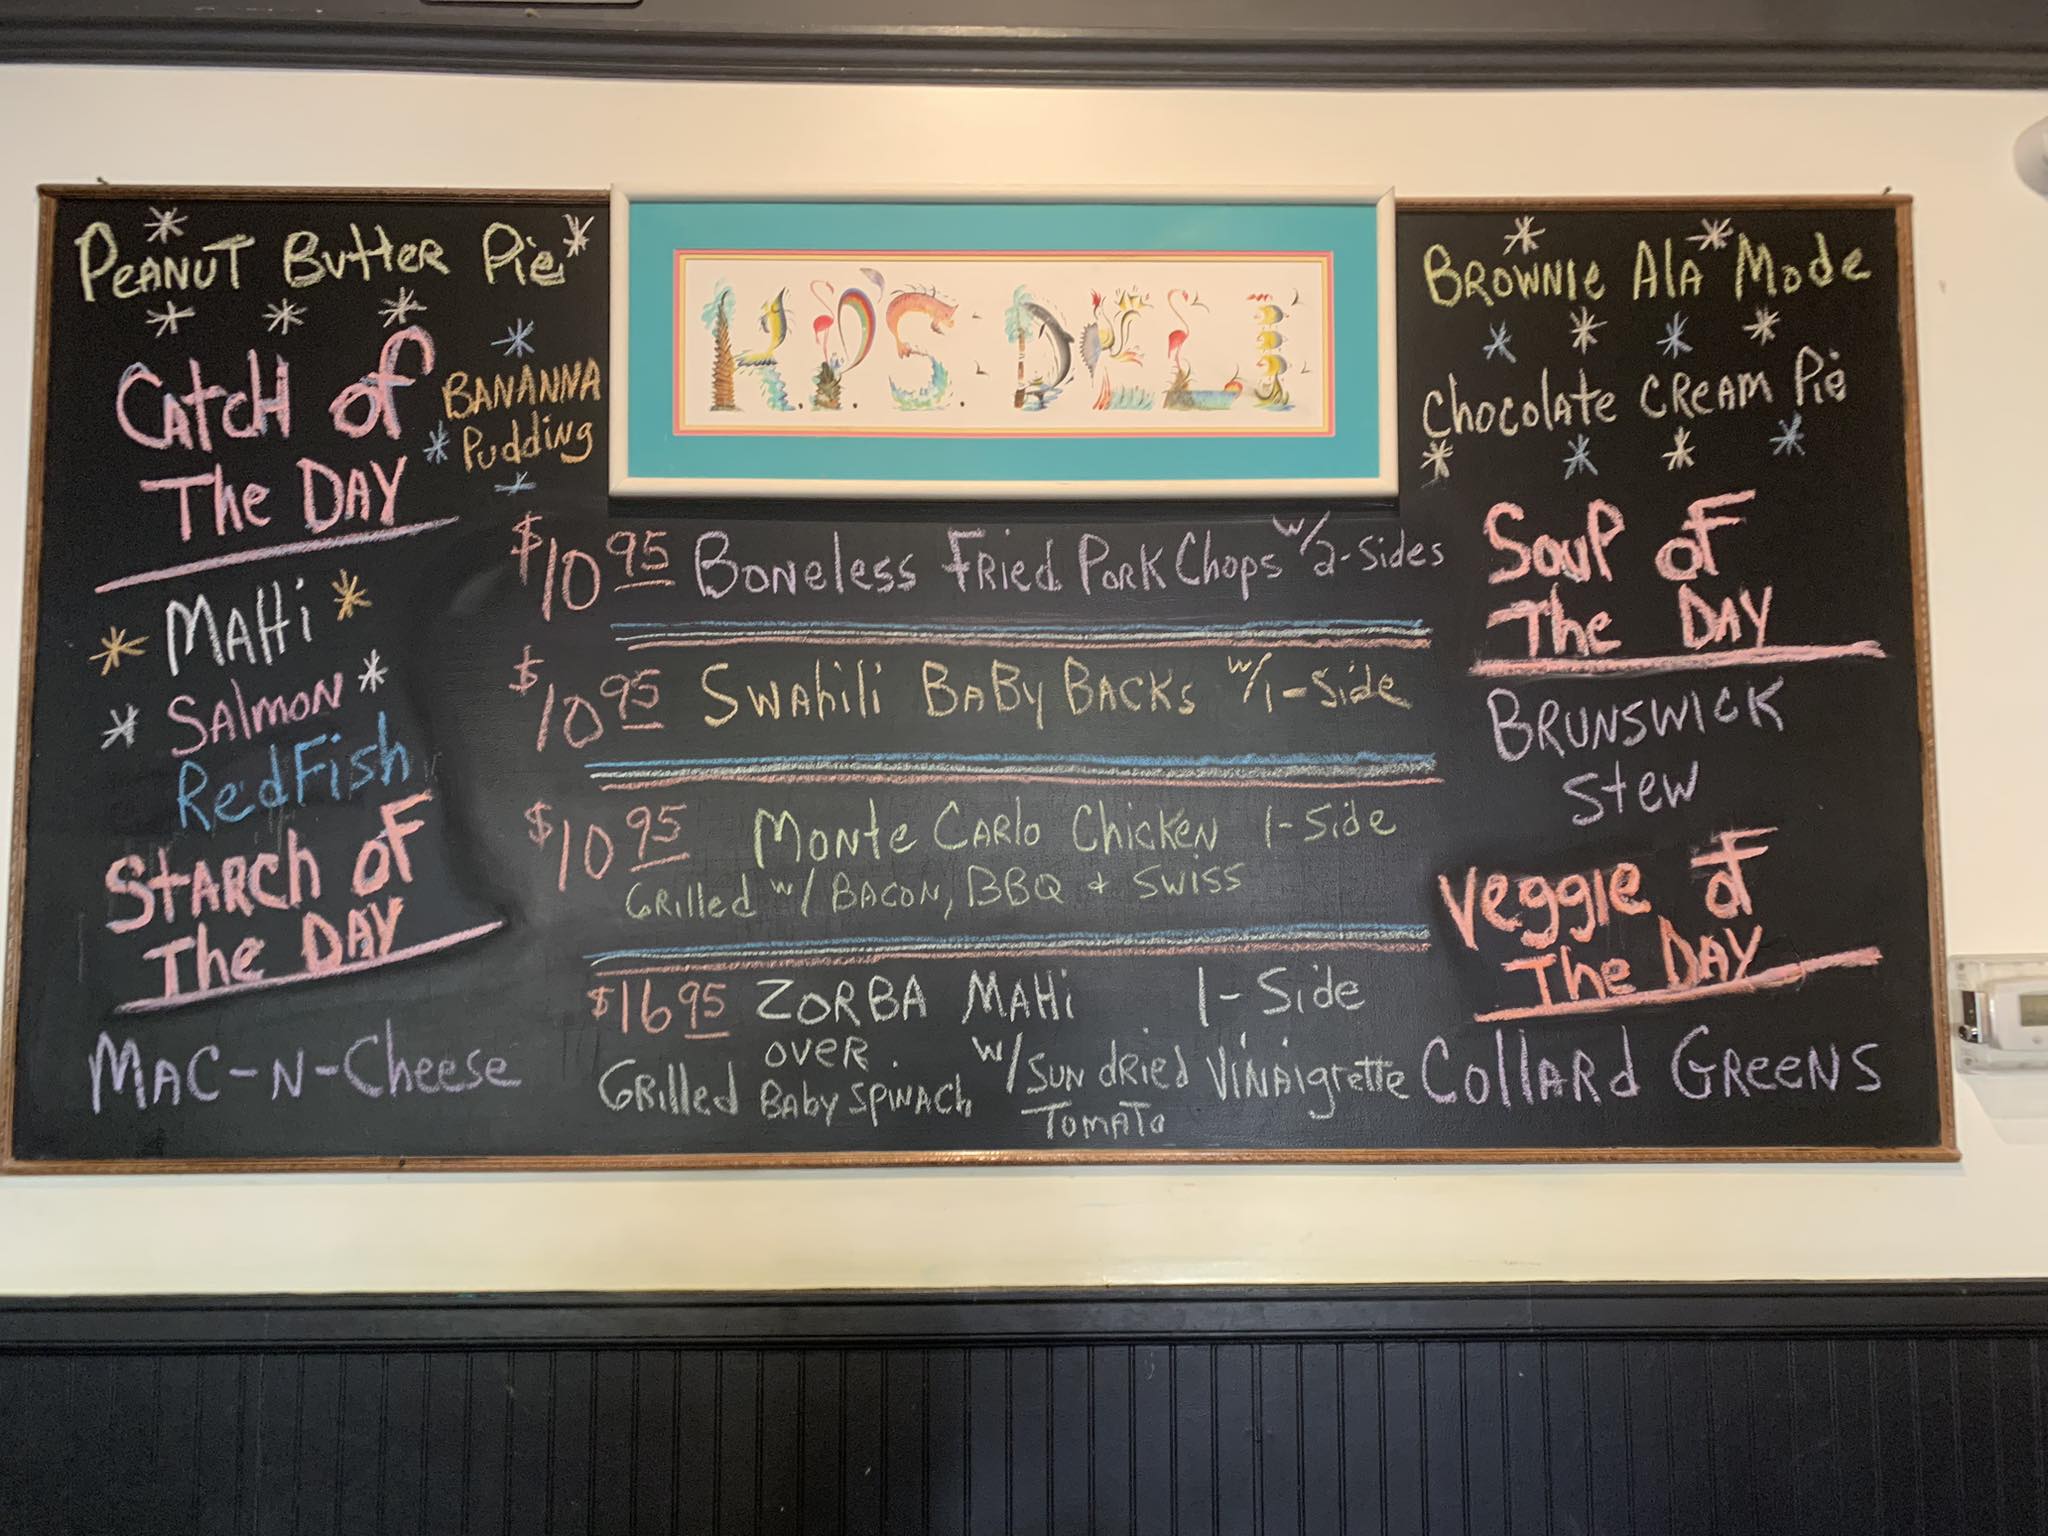 Peanut Butter Pie
Catch of
The Day
Bananna
Pudding
Mahi
Salmon
RedFish
Starch of
The Day
Mac-N-Cheese
R.P.S. DELI
$10.95 Boneless Fried Pork Chops w/2-Sides
$10.95 Swahili Baby Backs w/1-Side
$10.95 Monte Carlo Chicken 1-Side
Grilled w/ Bacon, BBQ + Swiss
$16.95 Zorba Mahi 1-Side
Grilled over Baby Spinach w/ Sun dried Tomato Vinaigrette
Brownie Ala Mode
Chocolate Cream Pie
Soup of
The Day
Brunswick
Stew
Veggie of
The Day
Collard Greens